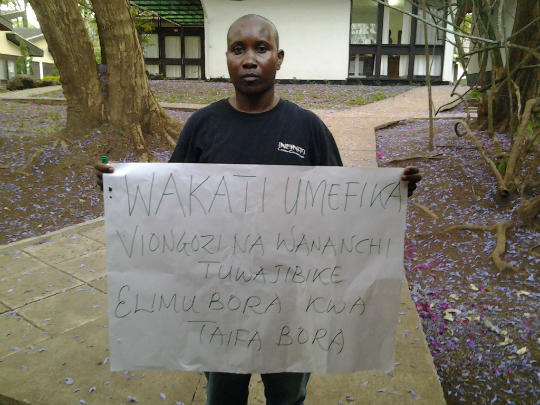 WAKATI UMEFIKA
VIONGOZI NA WANANCHI
TUWAJIBIKE
ELIMU BORA KWA
TAIFA BORA